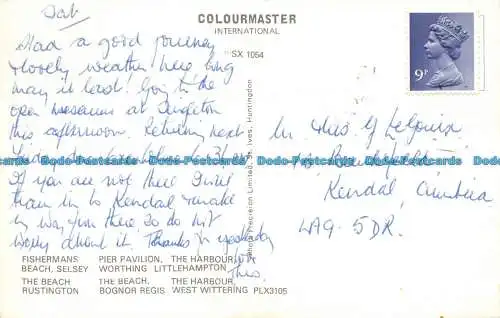 Sat
COLOURMASTER
INTERNATIONAL
PLX 1054
9P
Had a good journey
& lovely weather here long
may it last! Going to the
open museum at Singleton
this afternoon. Returning next
If you are not there I will
train to Kendal & make
my way from there so do not
worry about it. Thanks for yesterday
love
Theo.
Kendal, Cumbria
LA9. 5DR.
Dodo-Postcards Dodo-Postcards Dodo-Postcards Dodo-Postcards
Photo Precision Limited, St. Ives, Huntingdon
FISHERMANS PIER PAVILION, THE HARBOUR,
BEACH, SELSEY WORTHING LITTLEHAMPTON
THE BEACH THE BEACH, THE HARBOUR,
RUSTINGTON BOGNOR REGIS WEST WITTERING PLX3105